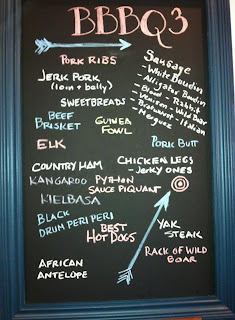 BBBQ3
PORK RIBS
JERK PORK
(loin + belly)
SWEETBREADS
Sausage
- White Boudin
- Alligator Boudin
- Blood - Rabbit
- Venison - Wild Boar
- Bratwurst - Italian
- Merguez
BEEF
BRISKET
GUINEA
FOWL
ELK
PORK BUTT
COUNTRY HAM
CHICKEN LEGS
- JERKY ONES
KANGAROO
PYTHON
SAUCE PIQUANT
KIELBASA
BLACK
DRUM PERI PERI
BEST
HOT DOGS
YAK
STEAK
RACK OF WILD
BOAR
AFRICAN
ANTELOPE